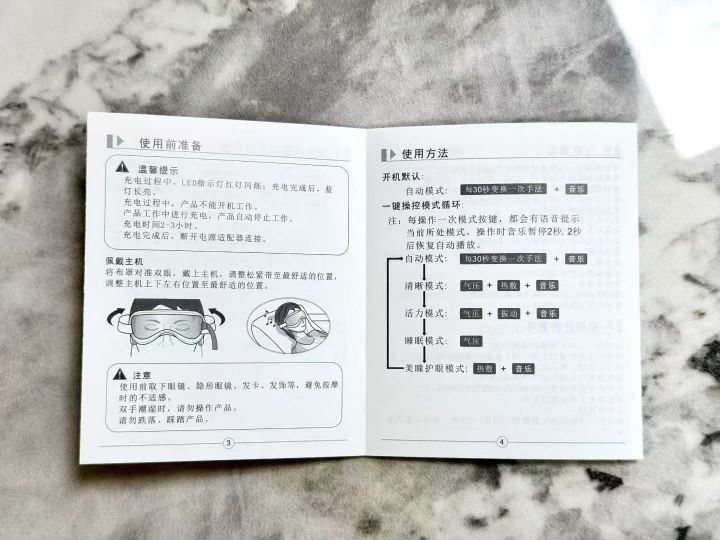 使用前准备
温馨提示
充电过程中，LED指示灯红灯闪烁；充电完成后，蓝
灯长亮。
充电过程中、产品不能开机工作。
产品工作中进行充电，产品自动停止工作。
充电时间2-3小时。
充电完成后，断开电源适配器连接。
佩戴主机
将布罩对准双眼，戴上主机，调整松紧带至最舒适的位置，
调整主机上下左右位置至最舒适的位置。
注意
使用前取下眼镜、隐形眼镜、发卡、发饰等，避免按摩
时的不适感。
双手潮湿时，请勿操作产品。
请勿跌落、踩踏产品。
3
使用方法
开机默认：
自动模式： 每30秒变换一次手法 + 音乐
一键操控模式循环：
注：每操作一次模式按键，都会有语音提示
当前所处模式，操作时音乐暂停2秒，2秒
后恢复自动播放。
自动模式： 每30秒变换一次手法 + 音乐
清晰模式： 气压 + 热敷 + 音乐
活力模式： 气压 + 振动 + 音乐
睡眠模式： 气压
美瞳护眼模式： 热敷 + 音乐
4